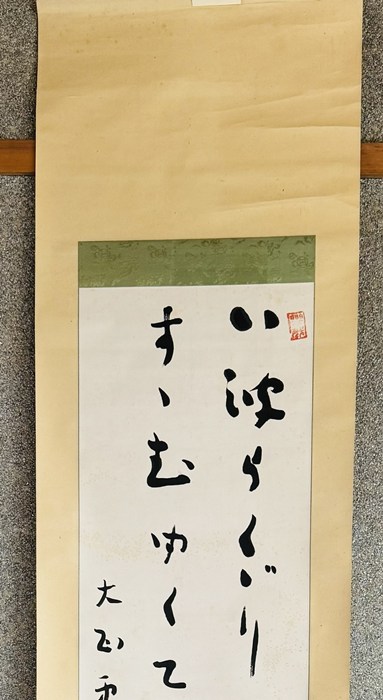 い波らくゞり
すゝむゆくて
大